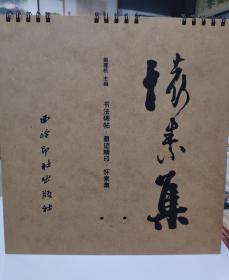 怀素集
主编
书法碑帖·墨迹精印·怀素集
西泠印社出版社